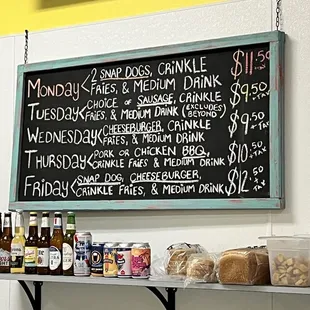 MONDAY < 2 SNAP DOGS, CRINKLE $11.50
FRIES, & MEDIUM DRINK + TAX
TUESDAY < CHOICE OF SAUSAGE, CRINKLE $9.50
FRIES, & MEDIUM DRINK (EXCLUDES BEYOND) + TAX
WEDNESDAY < CHEESEBURGER, CRINKLE $9.50
FRIES, & MEDIUM DRINK + TAX
THURSDAY < PORK OR CHICKEN BBQ, $10.50
CRINKLE FRIES & MEDIUM DRINK + TAX
FRIDAY < SNAP DOG, CHEESEBURGER, $12.50
CRINKLE FRIES, & MEDIUM DRINK + TAX